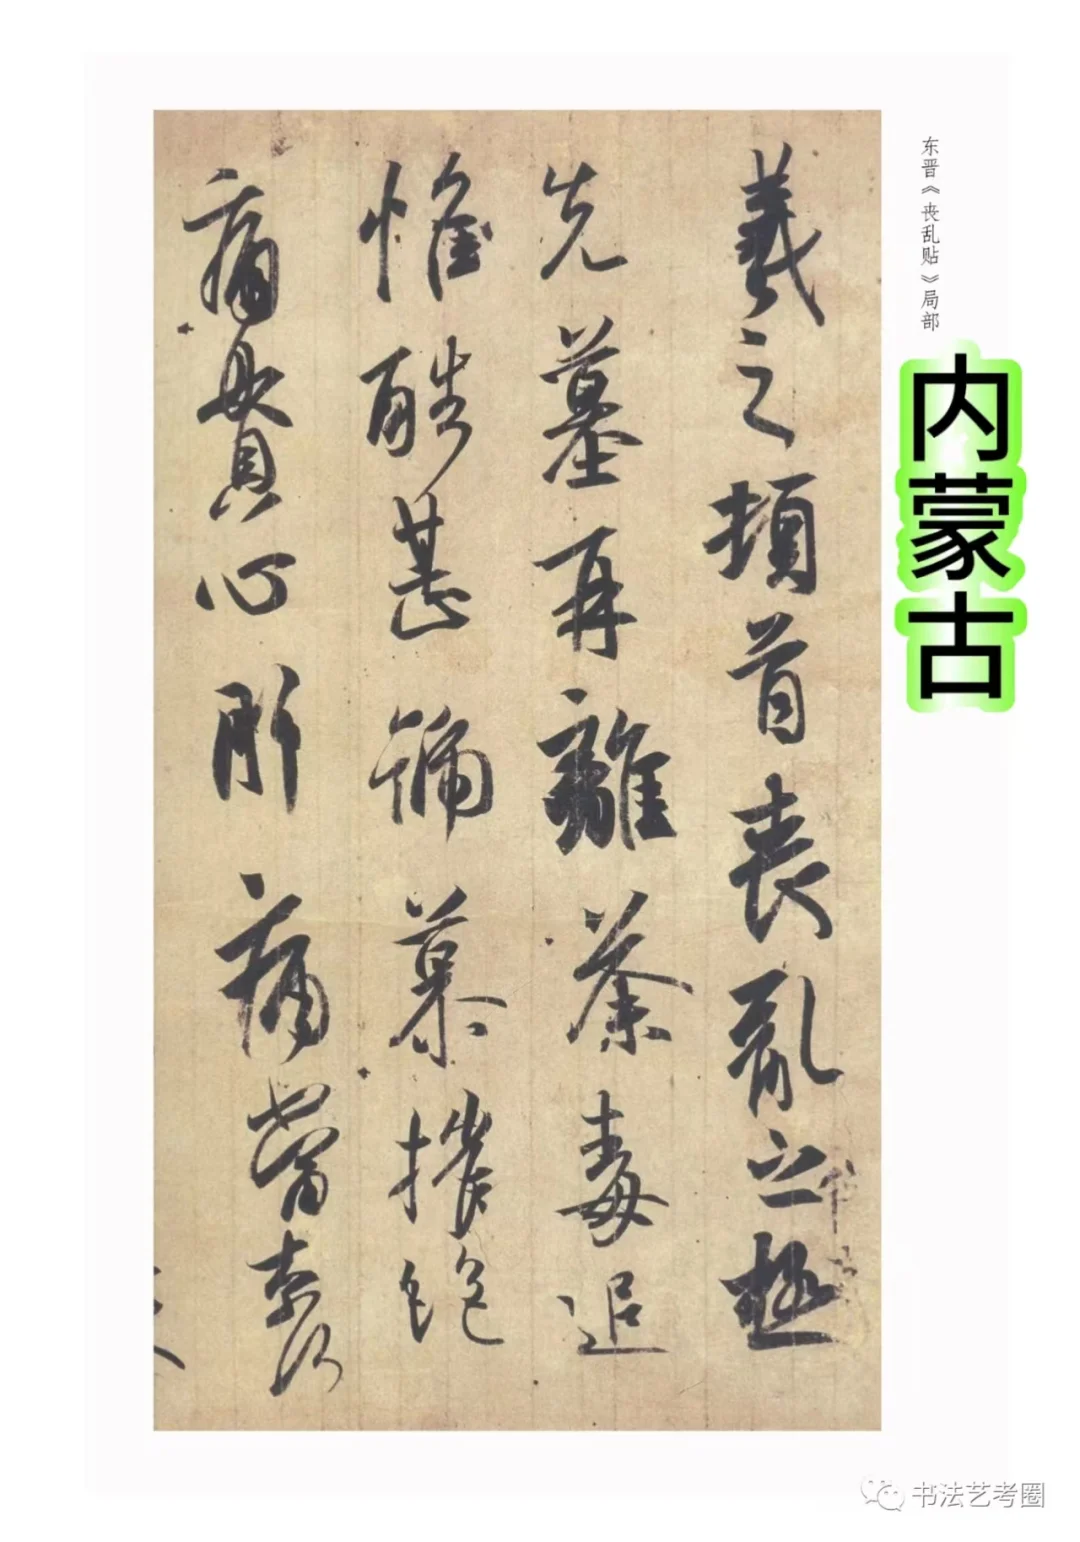 东晋《丧乱贴》局部
内蒙古
羲之頓首喪亂之極
先墓再離荼毒追
惟酷甚號慕摧絕
痛貫心肝痛當奈何
书法艺考圈